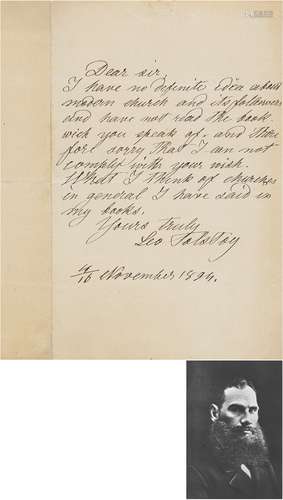 Dear sir,
I have no definite idea about
modern church and its followers
and have not read the book
wich you speak of. and there
fore I sorry that I can not
comply with your wish.
What I think of churches
in general I have said in
my books.
Yours truly
Leo Tolstoy
4/16 November 1894.